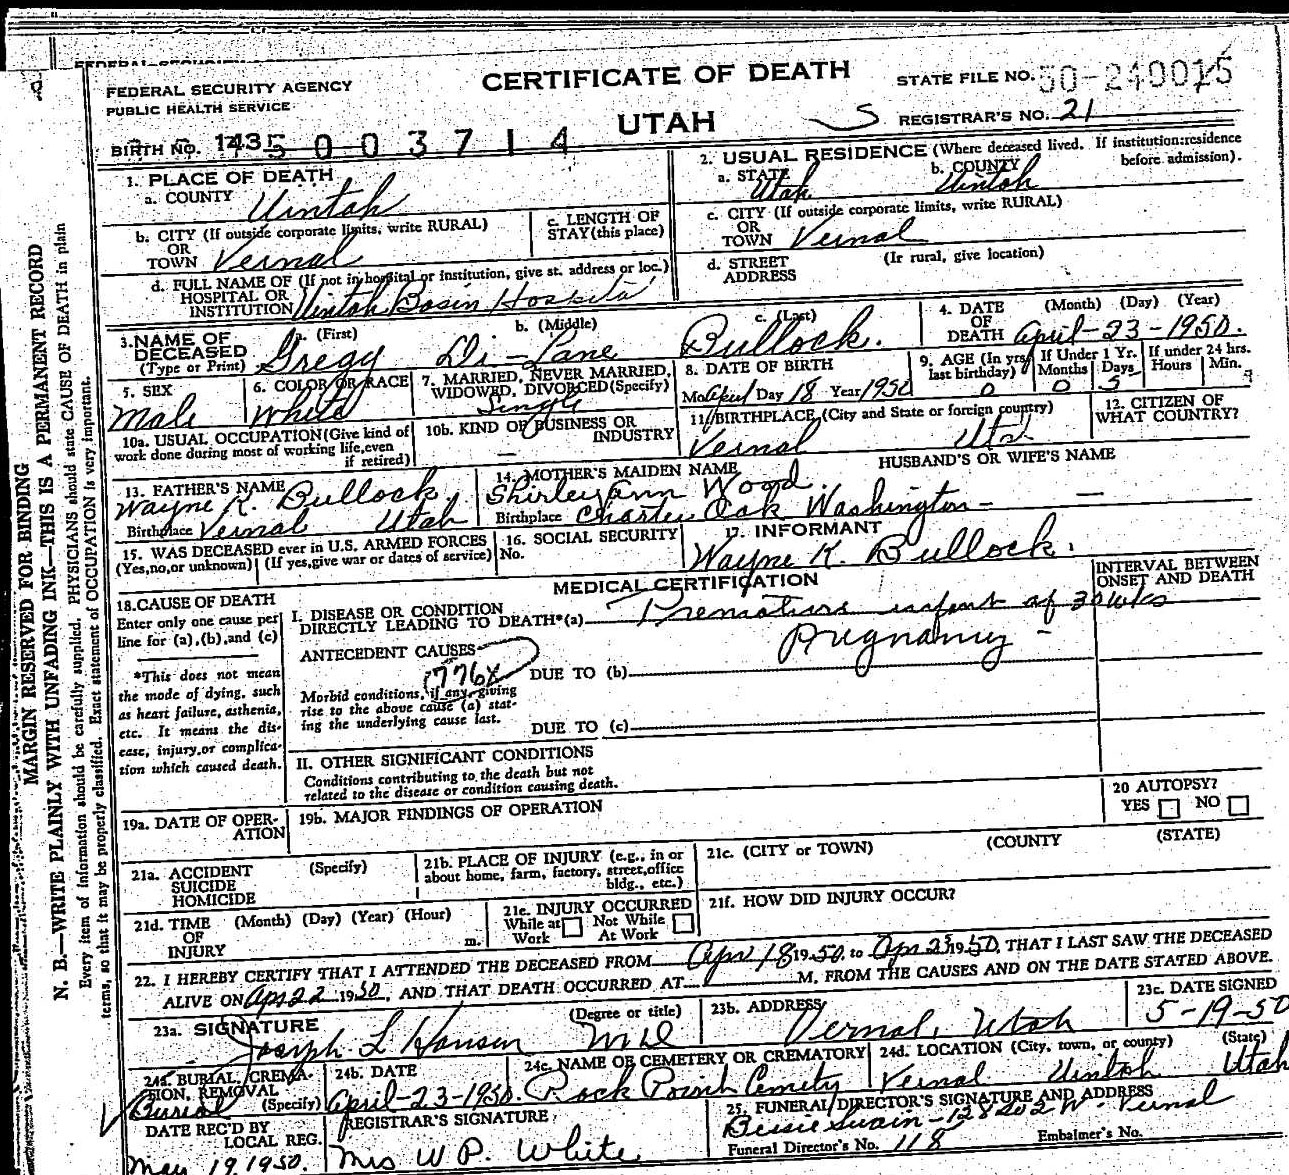 CERTIFICATE OF DEATH
UTAH
FEDERAL SECURITY AGENCY
PUBLIC HEALTH SERVICE
STATE FILE NO. 50-240015
REGISTRAR'S NO. 21
BIRTH NO. 143 5003714
1. PLACE OF DEATH
a. COUNTY Uintah
b. CITY (If outside corporate limits, write RURAL)
OR
TOWN Vernal
c. LENGTH OF
STAY (this place)
d. FULL NAME OF (If not in hospital or institution, give st. address or loc.)
HOSPITAL OR
INSTITUTION Uintah Basin Hospital
2. USUAL RESIDENCE (Where deceased lived. If institution: residence
before admission).
a. STATE Utah b. COUNTY Uintah
c. CITY (If outside corporate limits, write RURAL)
OR
TOWN Vernal
d. STREET (Ir rural, give location)
ADDRESS
3. NAME OF a. (First) b. (Middle) c. (Last)
DECEASED
(Type or Print) Gregy Di-Lane Bullock.
4. DATE (Month) (Day) (Year)
OF
DEATH April-23-1950.
5. SEX
Male
6. COLOR OR RACE
White
7. MARRIED, NEVER MARRIED,
WIDOWED, DIVORCED (Specify)
Single
8. DATE OF BIRTH
Mo April Day 18 Year 1950
9. AGE (In yrs. last birthday) 0
If Under 1 Yr. Months 0 Days 5
If under 24 hrs. Hours Min.
10a. USUAL OCCUPATION (Give kind of
work done during most of working life, even
if retired)
10b. KIND OF BUSINESS OR
INDUSTRY
—
11. BIRTHPLACE (City and State or foreign country)
Vernal Utah
12. CITIZEN OF
WHAT COUNTRY?
13. FATHER'S NAME
Wayne K. Bullock,
Birthplace Vernal Utah
14. MOTHER'S MAIDEN NAME
Shirley Ann Wood.
Birthplace Charter Oak Washington -
HUSBAND'S OR WIFE'S NAME
—
15. WAS DECEASED ever in U.S. ARMED FORCES
(Yes, no, or unknown) (If yes, give war or dates of service)
16. SOCIAL SECURITY
No.
17. INFORMANT
Wayne K. Bullock.
MEDICAL CERTIFICATION
INTERVAL BETWEEN
ONSET AND DEATH
18. CAUSE OF DEATH
Enter only one cause per
line for (a), (b), and (c)
*This does not mean
the mode of dying, such
as heart failure, asthenia,
etc. It means the dis-
ease, injury, or complica-
tion which caused death.
I. DISEASE OR CONDITION
DIRECTLY LEADING TO DEATH*(a) Premature infant of 30 wks
Pregnancy -
ANTECEDENT CAUSES
776X
DUE TO (b)
Morbid conditions, if any, giving
rise to the above cause (a) stat-
ing the underlying cause last.
DUE TO (c)
II. OTHER SIGNIFICANT CONDITIONS
Conditions contributing to the death but not
related to the disease or condition causing death.
19a. DATE OF OPER-
ATION
19b. MAJOR FINDINGS OF OPERATION
20 AUTOPSY?
YES NO
21a. ACCIDENT (Specify)
SUICIDE
HOMICIDE
21b. PLACE OF INJURY (e.g., in or
about home, farm, factory, street, office
bldg., etc.)
21c. (CITY or TOWN) (COUNTY (STATE)
21d. TIME (Month) (Day) (Year) (Hour)
OF
INJURY m.
21e. INJURY OCCURRED
While at Work Not While At Work
21f. HOW DID INJURY OCCUR?
22. I HEREBY CERTIFY THAT I ATTENDED THE DECEASED FROM Apr 18 1950, to Apr 23 1950, THAT I LAST SAW THE DECEASED
ALIVE ON Apr 22 1950, AND THAT DEATH OCCURRED AT M. FROM THE CAUSES AND ON THE DATE STATED ABOVE.
23a. SIGNATURE (Degree or title)
Joseph L Hansen MD
23b. ADDRESS
Vernal, Utah
23c. DATE SIGNED
5-19-50
24a. BURIAL, CREMA-
SION, REMOVAL
Burial (Specify)
24b. DATE
April-23-1950.
24c. NAME OF CEMETERY OR CREMATORY
Rock Point Cemetry
24d. LOCATION (City, town, or county) (State)
Vernal Uintah Utah
DATE REC'D BY
LOCAL REG.
May 19, 1950.
REGISTRAR'S SIGNATURE
Mrs W P. White
25. FUNERAL DIRECTOR'S SIGNATURE AND ADDRESS
Bessie Swain - W. Vernal
Funeral Director's No. 118 Embalmer's No.
MARGIN RESERVED FOR BINDING
N. B.—WRITE PLAINLY WITH UNFADING INK—THIS IS A PERMANENT RECORD
Every item of information should be carefully supplied. PHYSICIANS should state CAUSE OF DEATH in plain
terms, so that it may be properly classified. Exact statement of OCCUPATION is very important.